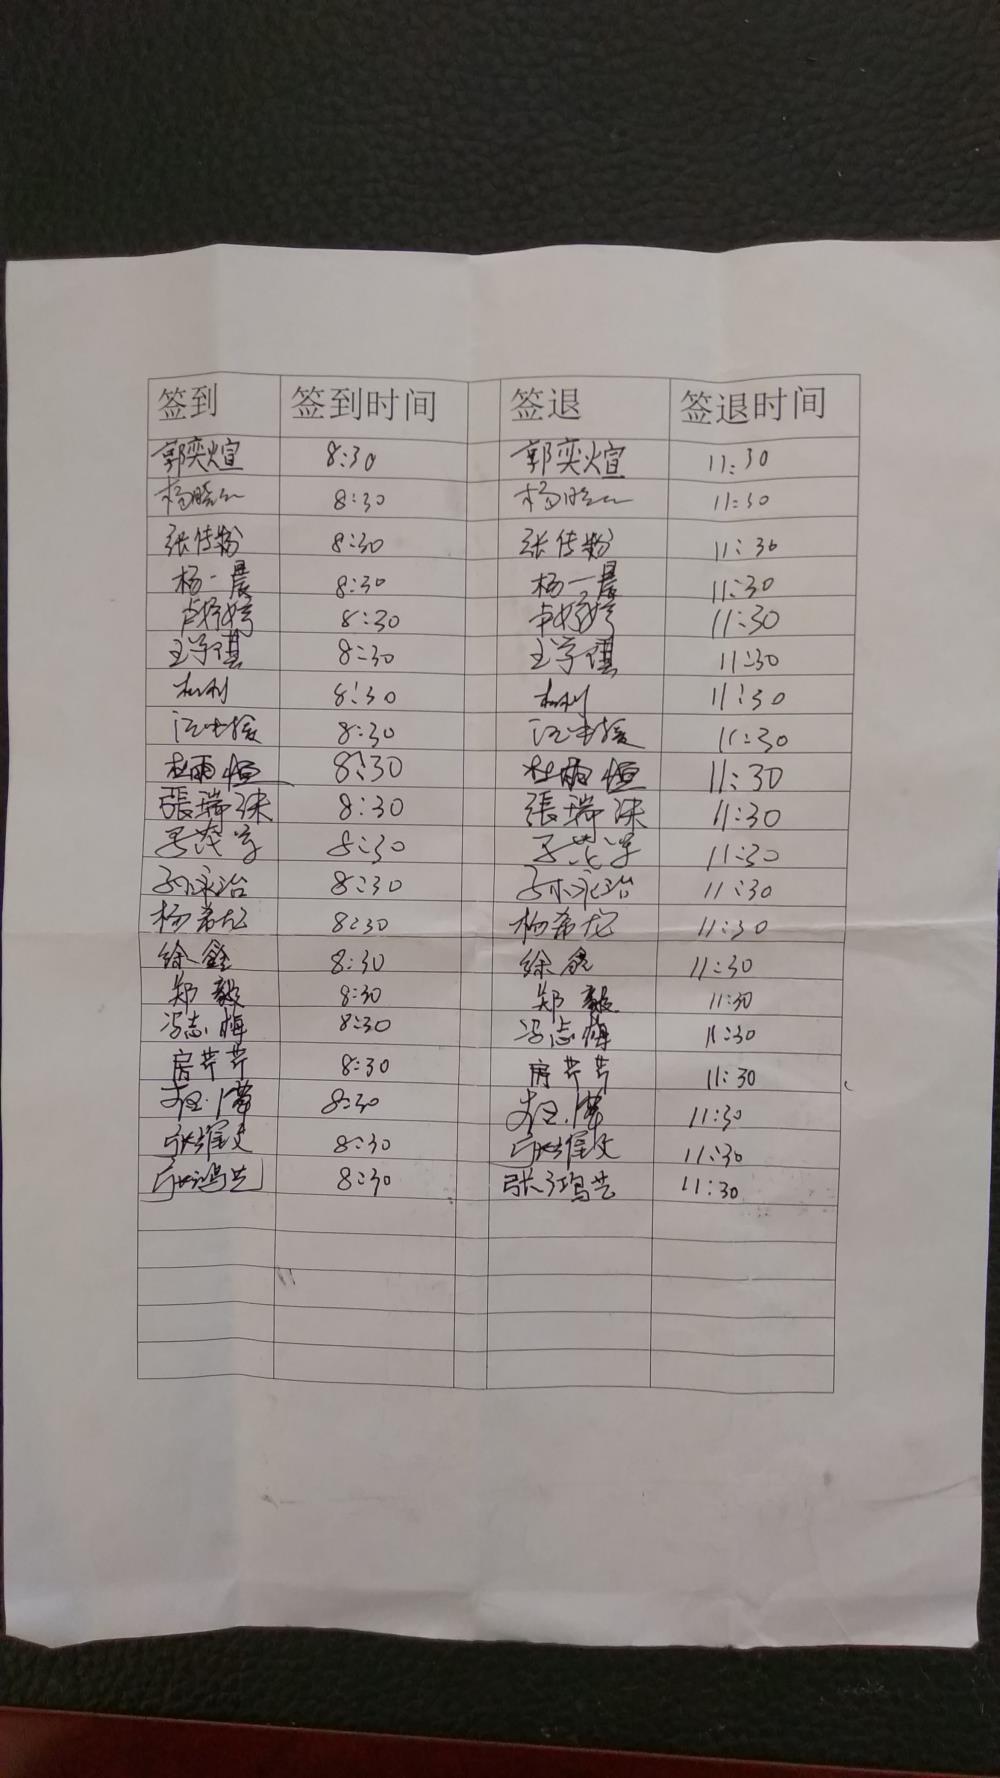 签到 签到时间 签退 签退时间
郭奕煊 8:30 郭奕煊 11:30
杨晓 8:30 杨晓 11:30
张传粉 8:30 张传粉 11:30
杨一晨 8:30 杨一晨 11:30
卢婷婷 8:30 卢婷婷 11:30
王学琪 8:30 王学琪 11:30
8:30 11:30
8:30 11:30
杜雨恒 8:30 杜雨恒 11:30
張瑞 8:30 張瑞 11:30
8:30 11:30
孙永治 8:30 孙永治 11:30
杨希龙 8:30 杨希龙 11:30
徐鑫 8:30 徐鑫 11:30
郑毅 8:30 郑毅 11:30
冯志梅 8:30 冯志梅 11:30
房芹芹 8:30 房芹芹 11:30
8:30 11:30
张 8:30 张 11:30
张鸿艺 8:30 张鸿艺 11:30